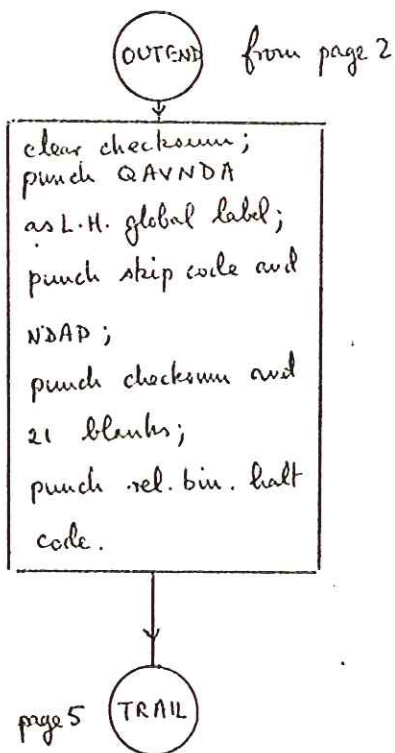 OUTEND from page 2
clear checksum;
punch QAVNDA
as L.H. global label;
punch skip code and
NDAP;
punch checksum and
21 blanks;
punch rel. bin. halt
code.
page 5 TRAIL